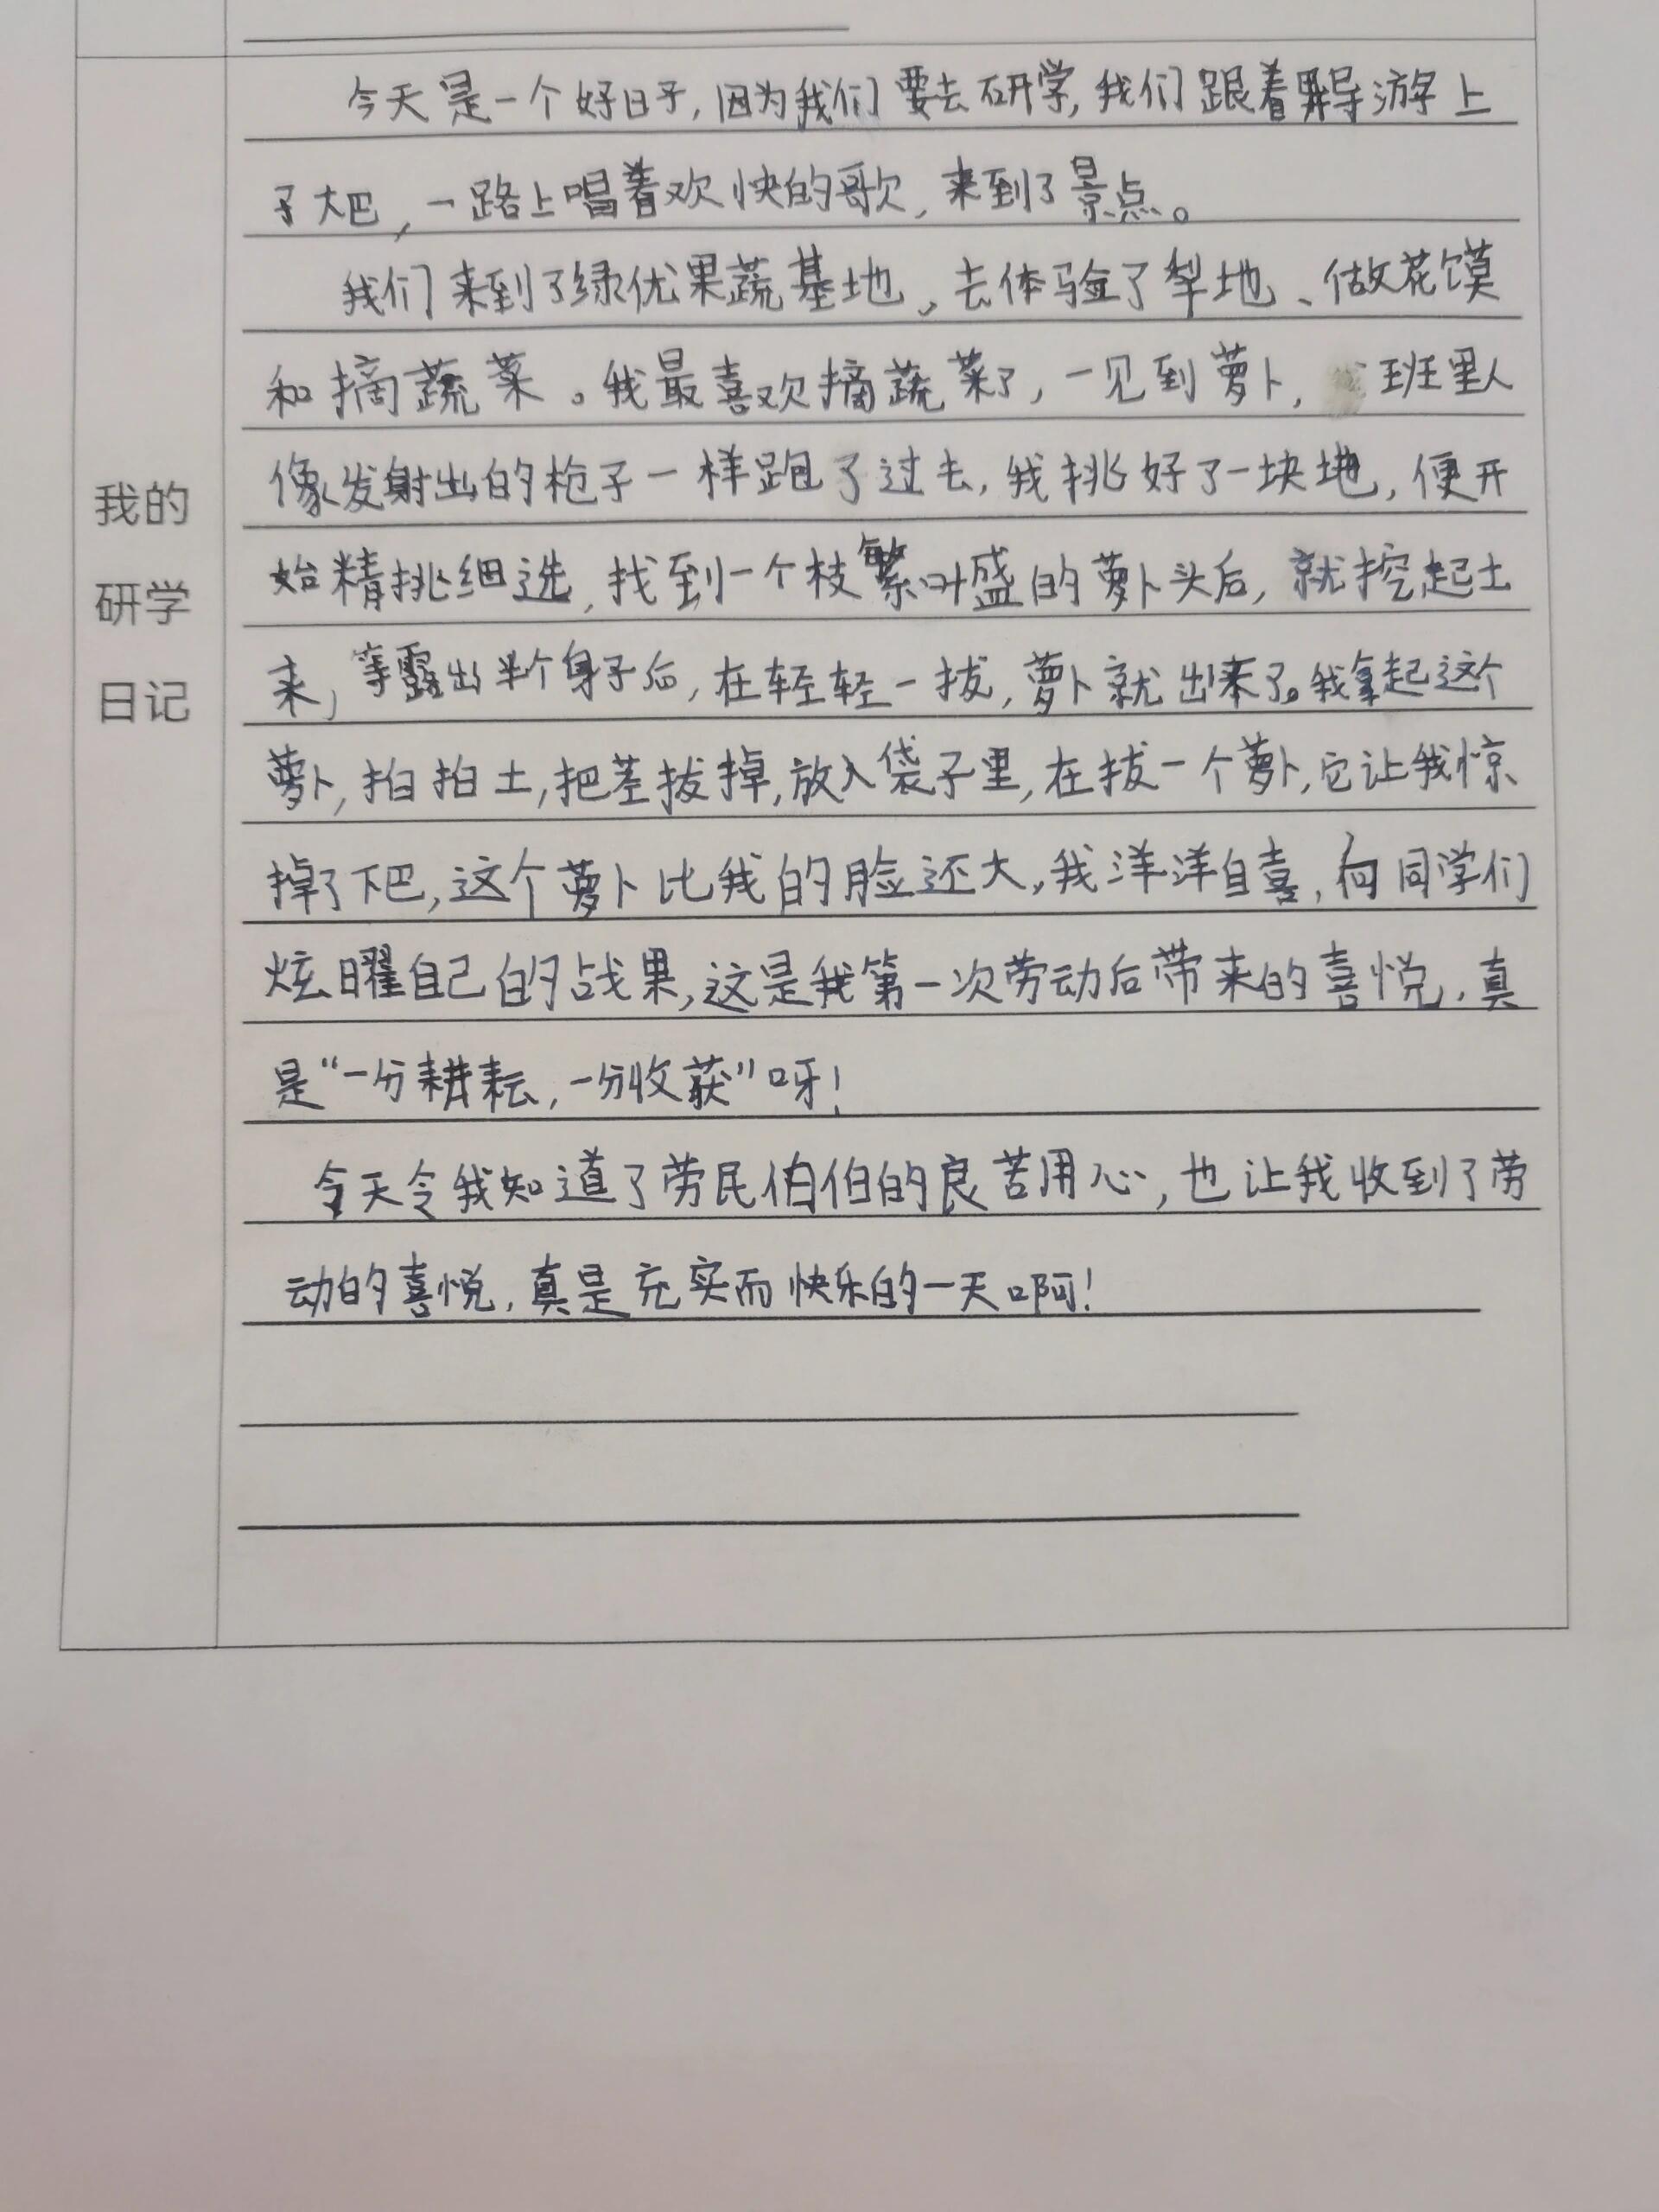 我的
研学
日记
今天是一个好日子,因为我们要去研学,我们跟着导游上
了大巴,一路上唱着欢快的歌,来到了景点。
我们来到了绿优果蔬基地,去体验了犁地、做花馍
和摘蔬菜。我最喜欢摘蔬菜了,一见到萝卜,班里人
像发射出的枪子一样跑了过去,我挑好了一块地,便开
始精挑细选,找到一个枝繁叶盛的萝卜头后,就挖起土
来,等露出半个身子后,在轻轻一拔,萝卜就出来了。我拿起这个
萝卜,拍拍土,把茎拔掉,放入袋子里,在拔一个萝卜,它让我惊
掉了下巴,这个萝卜比我的脸还大,我洋洋自喜,向同学们
炫曜自己的战果,这是我第一次劳动后带来的喜悦,真
是“一分耕耘,一分收获”呀!
今天令我知道了劳民伯伯的良苦用心,也让我收到了劳
动的喜悦,真是充实而快乐的一天啊!